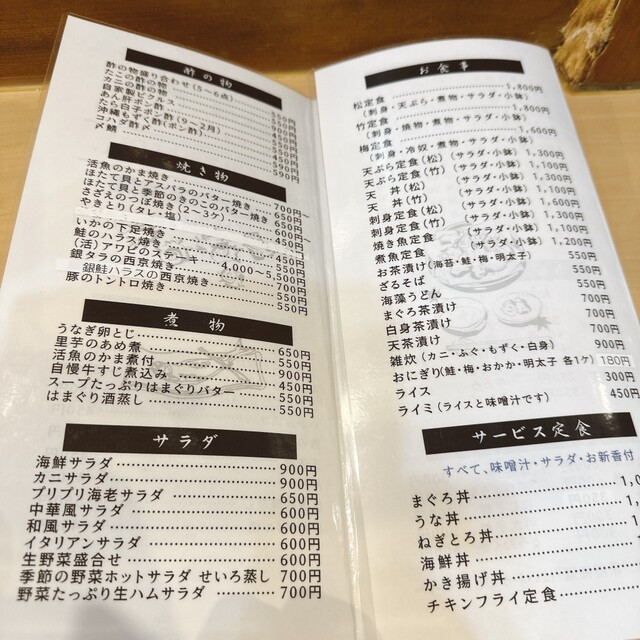 酢の物
酢の物盛り合わせ(5〜6点)
たこの酢の物
カニの酢の物 550円
自家製ピクルス
あん肝ポン酢
たら白子ポン酢(9〜2月)
沖縄もずく酢(ポン酢)
コハダ酢〆 450円
〆鯖 590円
焼き物
活魚のかま焼き
ほたて貝とアスパラのバター焼き 700円〜
ほたて貝と季節のきのこのバター焼き 650円
さざえのつぼ焼き(2〜3ヶ)
やきとり(タレ・塩)
いかの下足焼き
鮭のハラス焼き
(活)アワビのステーキ 4,000〜5,500円
銀タラの西京焼き
銀鮭ハラスの西京焼き
豚のトントロ焼き 550円
煮物
うなぎ卵とじ 650円
里芋のあめ煮 550円
活魚のかま煮付 900円
自慢牛すじ煮込み 450円
スープたっぷりはまぐりバター 550円
はまぐり酒蒸し 550円
サラダ
海鮮サラダ 900円
カニサラダ 900円
プリプリ海老サラダ 650円
中華風サラダ 600円
和風サラダ 600円
イタリアンサラダ 600円
生野菜盛合せ 600円
季節の野菜ホットサラダ せいろ蒸し 700円
野菜たっぷり生ハムサラダ 700円
お食事
松定食 1,800円
(刺身・天ぷら・煮物・サラダ・小鉢)
竹定食 1,800円
(刺身・焼物・煮物・サラダ・小鉢)
梅定食 1,600円
(刺身・冷奴・煮物・サラダ・小鉢)
天ぷら定食(松) (サラダ・小鉢) 1,300円
天ぷら定食(竹) (サラダ・小鉢) 1,100円
天丼(松) (サラダ・小鉢) 1,300円
天丼(竹) (サラダ・小鉢) 1,100円
刺身定食(松) (サラダ・小鉢) 1,600円
刺身定食(竹) (サラダ・小鉢) 1,300円
焼き魚定食 (サラダ・小鉢) 1,100円
煮魚定食 (サラダ・小鉢) 1,200円
お茶漬け(海苔・鮭・梅・明太子) 550円
ざるそば 550円
海藻うどん 550円
まぐろ茶漬け 700円
白身茶漬け 700円
天茶漬け 700円
雑炊(カニ・ふぐ・もずく・白身) 900円
おにぎり(鮭・梅・おかか・明太子 各1ヶ) 180円
ライス 300円
ライミ(ライスと味噌汁です) 450円
サービス定食
すべて、味噌汁・サラダ・お新香付
まぐろ丼
うな丼
ねぎとろ丼
海鮮丼
かき揚げ丼
チキンフライ定食